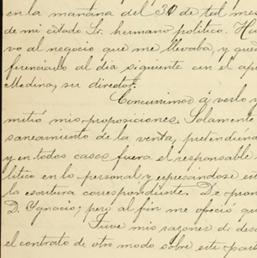 en la mañana del 30 de tal mes
de mi citado Sr. hermano político. Ha
vo al negocio que me llevaba, y que
ferenciarlo al dia siguiente en el ap
Medina, su director.
Concurrimos á verlo y
mitió mis proposiciones. Solamente
saneamiento de la venta, pretendién
y en todos casos fuera el responsable
lítico en lo personal y expresándose en
la escritura correspondiente. De pron
D. Ignacio; pero al fin me ofreció qu
Tuve mis razones de des
el contrato de otro modo sobre este par